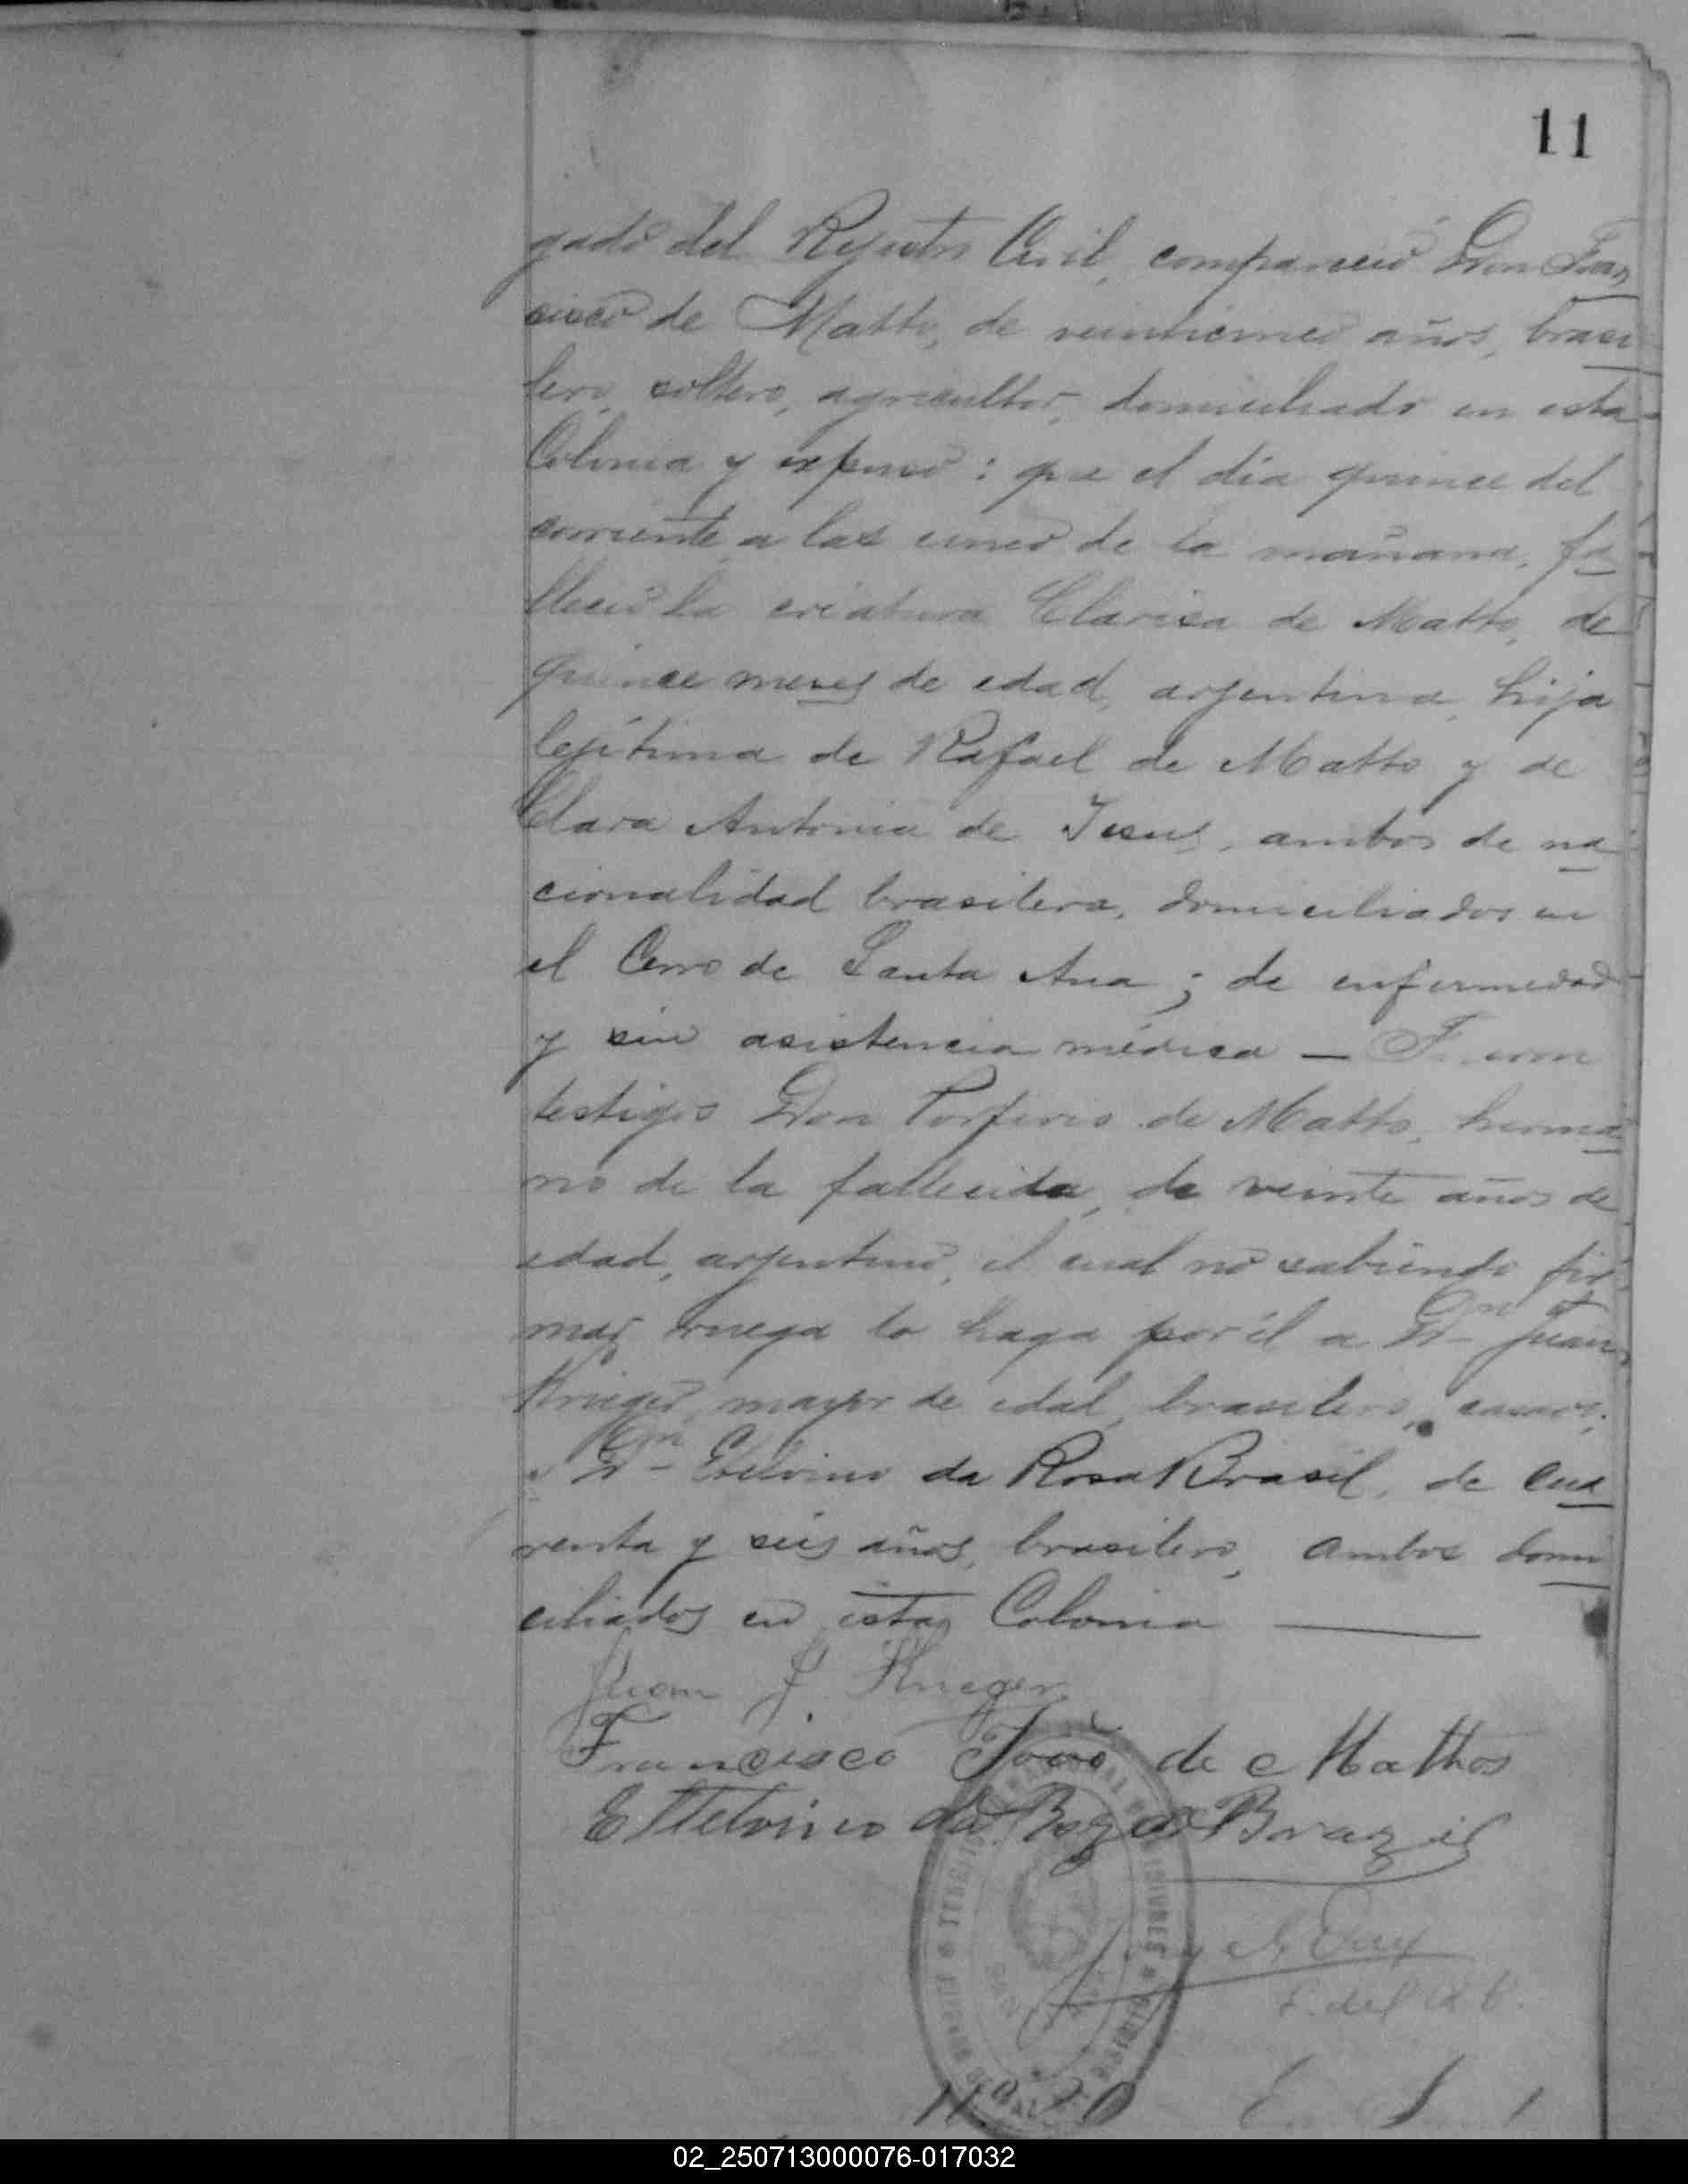 11
gado del Registro Civil, compareció Don Fran
cisco de Matto, de veinticinco años, brasi
lero, soltero, agricultor, domiciliado en esta
Colonia y expuso: que el día quince del
corriente a las cinco de la mañana, fa
lleció la criatura Clarisa de Matto, de
quince meses de edad, argentina, hija
lejítima de Rafael de Matto y de
Clara Antonia de Jesus, ambos de na
cionalidad brasilera, domiciliados en
el Cerro de Santa Ana; de enfermedad
y sin asistencia médica —
testigos Don Porfirio de Matto, herma
no de la fallecida, de veinte años de
edad, argentino, el cual no sabiendo fir
mar ruega lo haga por él a Dn Juan
Krieger, mayor de edad, brasilero, casado,
y Dn Etelvino da Rosa Brasil, de cua
renta y seis años, brasilero, ambos domi
ciliados en esta Colonia —
Juan J. Krieger
Francisco João de Mathos
Etelvino da Roza Brazil
del R. C.
TERRITORIO NACIONAL DE MISIONES
02_250713000076-017032